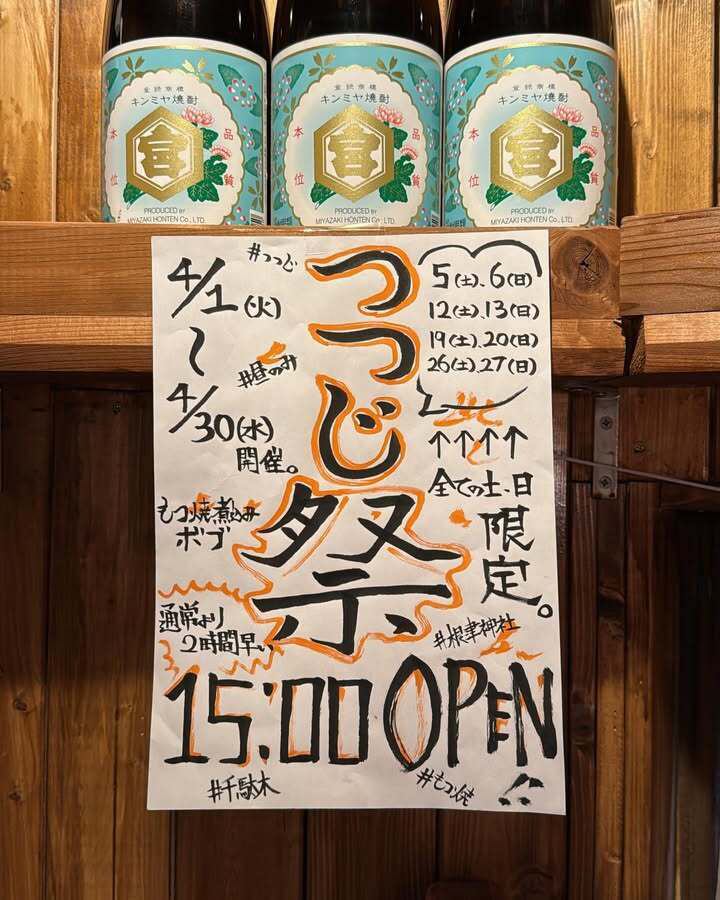 登録商標
キンミヤ焼酎
本位
品質
宮
PRODUCED BY
MIYAZAKI HONTEN Co., LTD.
登録商標
キンミヤ焼酎
本位
品質
宮
PRODUCED BY
MIYAZAKI HONTEN Co., LTD.
登録商標
キンミヤ焼酎
本位
品質
宮
PRODUCED BY
MIYAZAKI HONTEN Co., LTD.
#つつじ
つつじ祭
4/1(火)
〜
4/30(水)
開催。
#昼のみ
5(土)、6(日)
12(土)、13(日)
19(土)、20(日)
26(土)、27(日)
↑↑↑↑
全ての土、日
限定。
もつ焼煮込み
ボブ
通常より
2時間早い
#根津神社
15:00 OPEN!!
#千駄木
#もつ焼